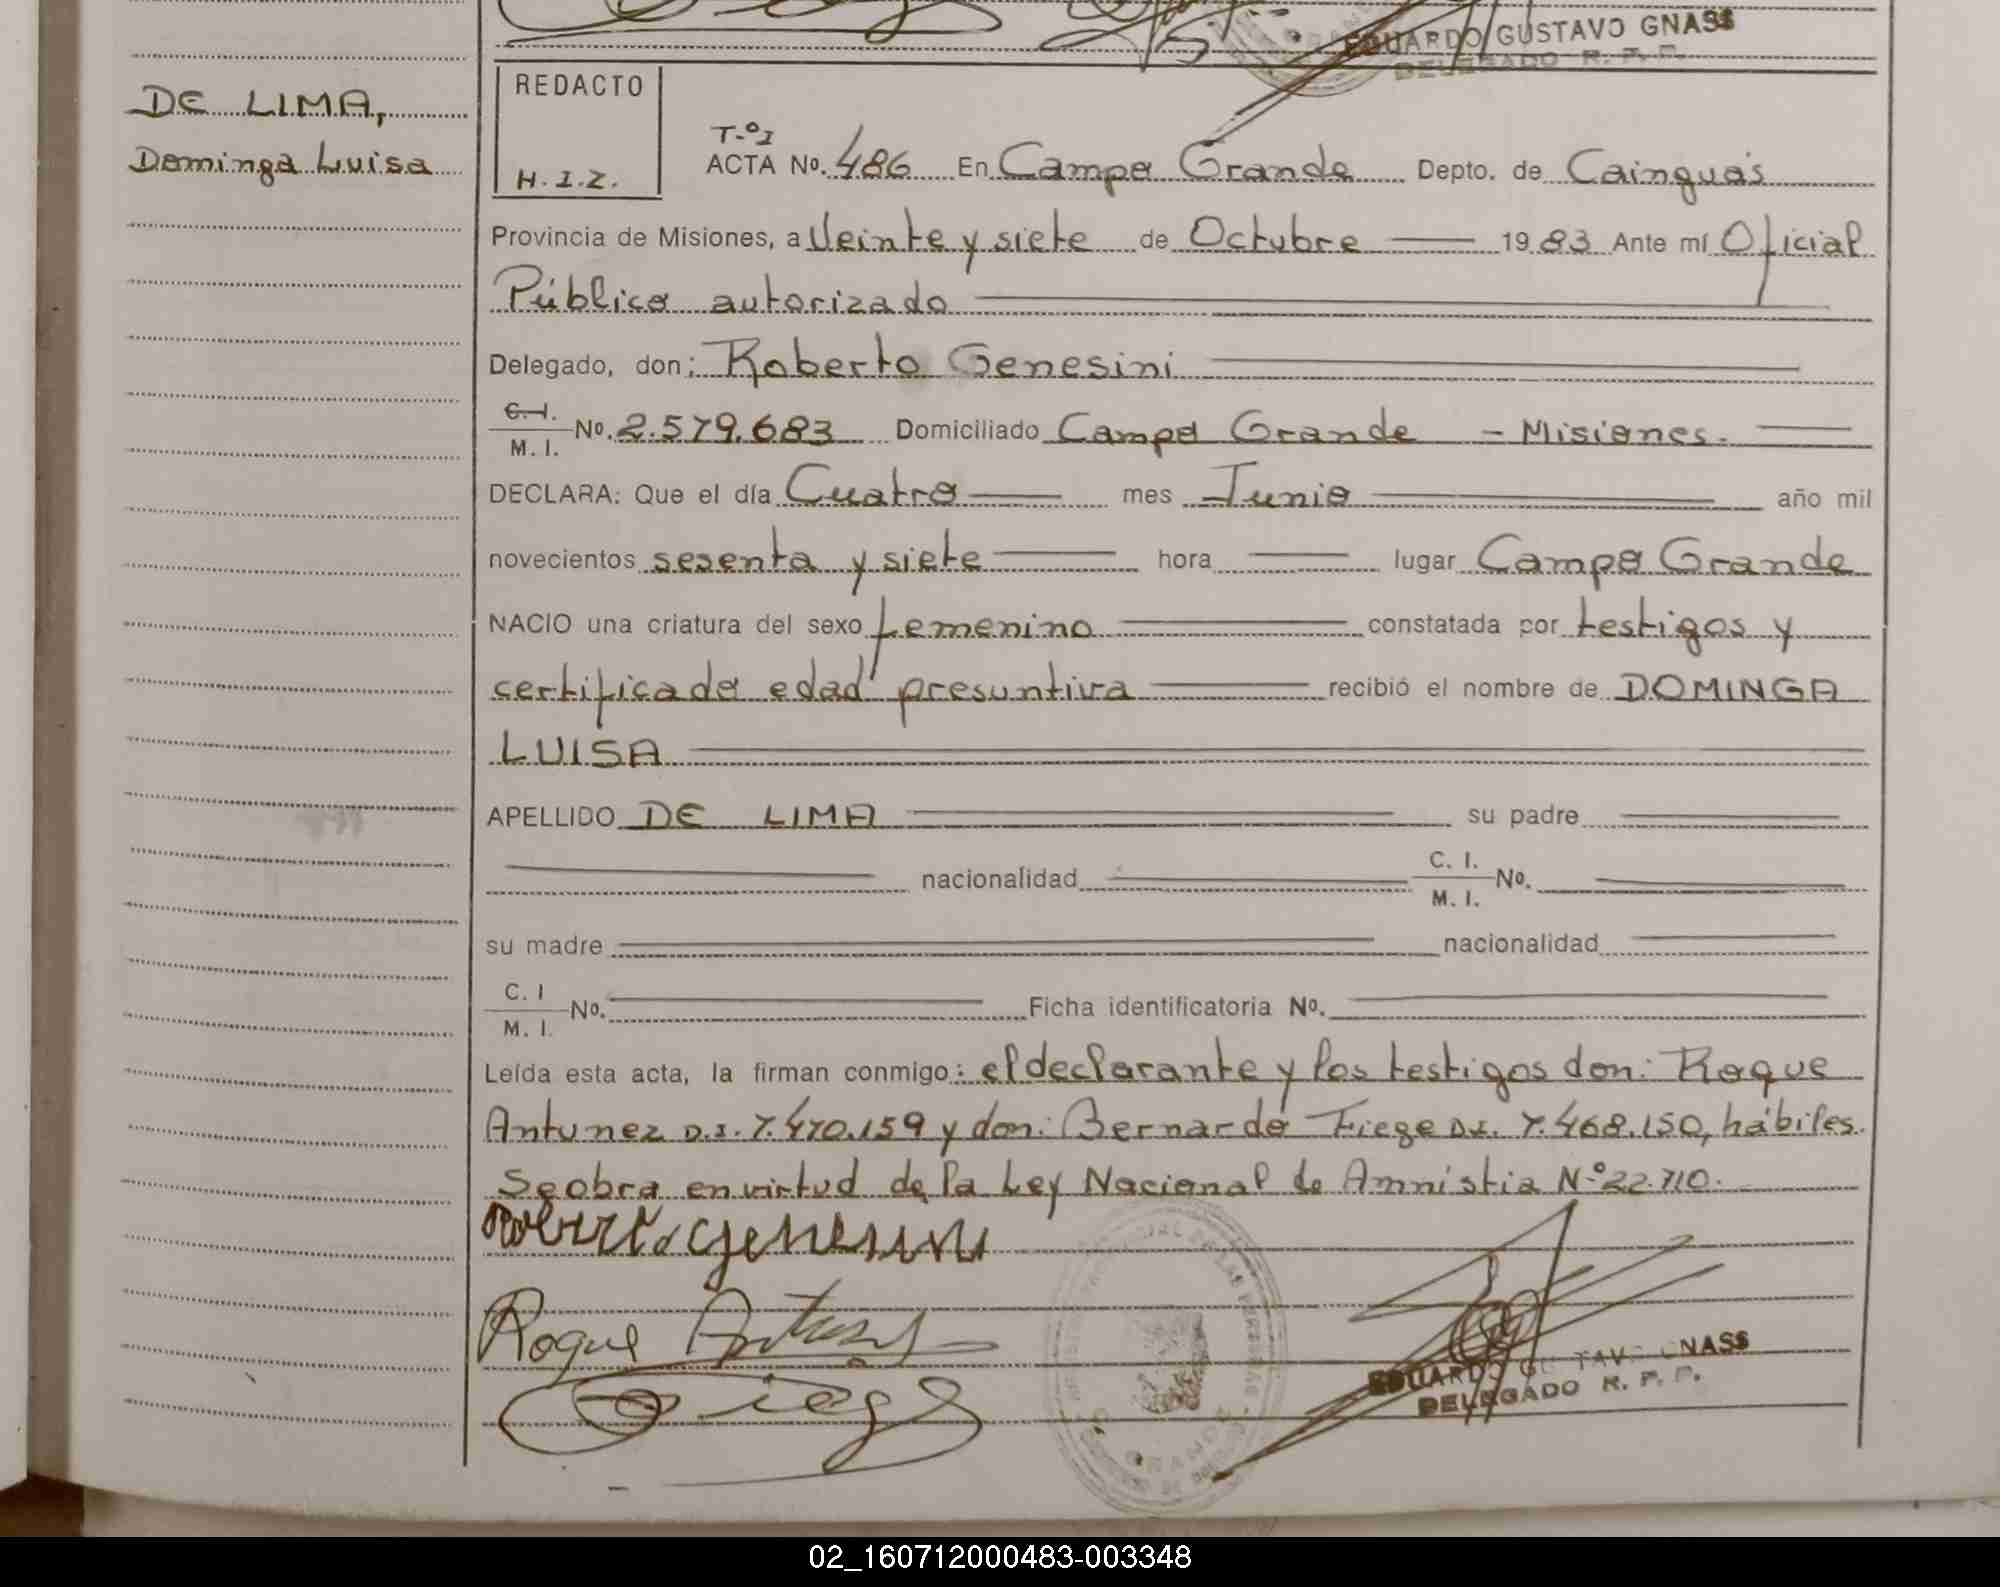 EDUARDO GUSTAVO GNASS
DELEGADO R. P. P.
DE LIMA,
Dominga Luisa
REDACTO
H. I. Z.
T-º1
ACTA Nº. 486 En Campo Grande Depto. de Cainguás
Provincia de Misiones, a Veinte y siete de Octubre 1983 Ante mí Oficial
Público autorizado
Delegado, don: Roberto Genesini
C. I. M. I. Nº. 2.579.683 Domiciliado Campo Grande - Misiones.
DECLARA: Que el día Cuatro mes Junio año mil
novecientos sesenta y siete hora lugar Campo Grande
NACIO una criatura del sexo femenino constatada por testigos y
certificado edad presuntiva recibió el nombre de DOMINGA
LUISA
APELLIDO DE LIMA su padre
nacionalidad C. I. M. I. Nº.
su madre nacionalidad
C. I M. I. Nº. Ficha identificatoria Nº.
Leída esta acta, la firman conmigo: el declarante y los testigos don: Roque
Antunez D.I. 7.470.159 y don: Bernardo Fiege D.I. 7.468.150, hábiles.
Se obra en virtud de la Ley Nacional de Amnistia Nº 22.710.
Roberto Genesini
Roque Antunez
Fiege
EDUARDO GUSTAVO GNASS
DELEGADO R. P. P.
02_160712000483-003348